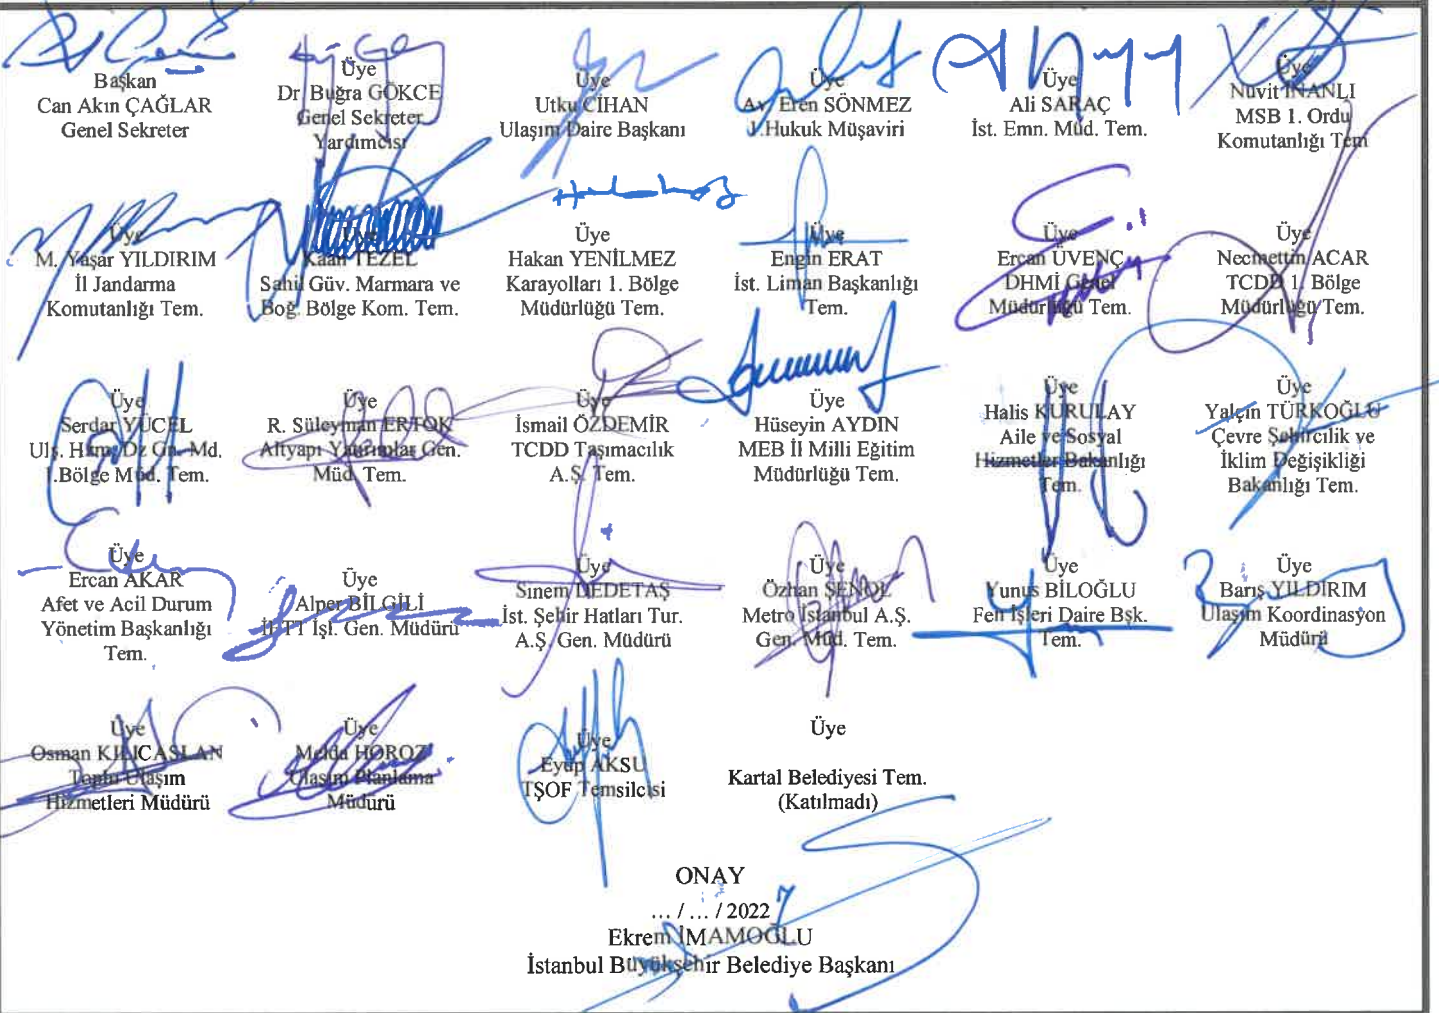 Başkan
Can Akın ÇAĞLAR
Genel Sekreter
Üye
Dr. Buğra GÖKCE
Genel Sekreter
Yardımcısı
Üye
Utku CİHAN
Ulaşım Daire Başkanı
Üye
Av. Eren SÖNMEZ
1.Hukuk Müşaviri
Üye
Ali SARAÇ
İst. Emn. Müd. Tem.
Üye
Nuvit İNANLI
MSB 1. Ordu
Komutanlığı Tem
Üye
M. Yaşar YILDIRIM
İl Jandarma
Komutanlığı Tem.
Üye
Kaan TEZEL
Sahil Güv. Marmara ve
Boğ. Bölge Kom. Tem.
Üye
Hakan YENİLMEZ
Karayolları 1. Bölge
Müdürlüğü Tem.
Üye
Engin ERAT
İst. Liman Başkanlığı
Tem.
Üye
Ercan ÜVENÇ
DHMİ Genel
Müdürlüğü Tem.
Üye
Necmettin ACAR
TCDD 1. Bölge
Müdürlüğü Tem.
Üye
Serdar YÜCEL
Ulş. Hizm. Dz Gn. Md.
1.Bölge Müd. Tem.
Üye
R. Süleyman ERTOK
Altyapı Yatırımlar Gen.
Müd. Tem.
Üye
İsmail ÖZDEMİR
TCDD Taşımacılık
A.Ş. Tem.
Üye
Hüseyin AYDIN
MEB İl Milli Eğitim
Müdürlüğü Tem.
Üye
Halis KURULAY
Aile ve Sosyal
Hizmetler Bakanlığı
Tem.
Üye
Yalçın TÜRKOĞLU
Çevre Şehircilik ve
İklim Değişikliği
Bakanlığı Tem.
Üye
Ercan AKAR
Afet ve Acil Durum
Yönetim Başkanlığı
Tem.
Üye
Alper BİLGİLİ
İETT İşl. Gen. Müdürü
Üye
Sinem DEDETAŞ
İst. Şehir Hatları Tur.
A.Ş. Gen. Müdürü
Üye
Özhan ŞENOL
Metro İstanbul A.Ş.
Gen. Müd. Tem.
Üye
Yunus BİLOĞLU
Fen İşleri Daire Bşk.
Tem.
Üye
Barış YILDIRIM
Ulaşım Koordinasyon
Müdürü
Üye
Osman KILIÇASLAN
Toplu Ulaşım
Hizmetleri Müdürü
Üye
Melda HOROZ
Ulaşım Planlama
Müdürü
Üye
Eyüp AKSU
TŞOF Temsilcisi
Üye
Kartal Belediyesi Tem.
(Katılmadı)
ONAY
... / ... / 2022
Ekrem İMAMOĞLU
İstanbul Büyükşehir Belediye Başkanı